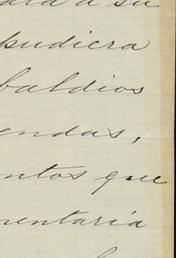 para a su
pudiera
baldios
endas,
ntos que
mentaria